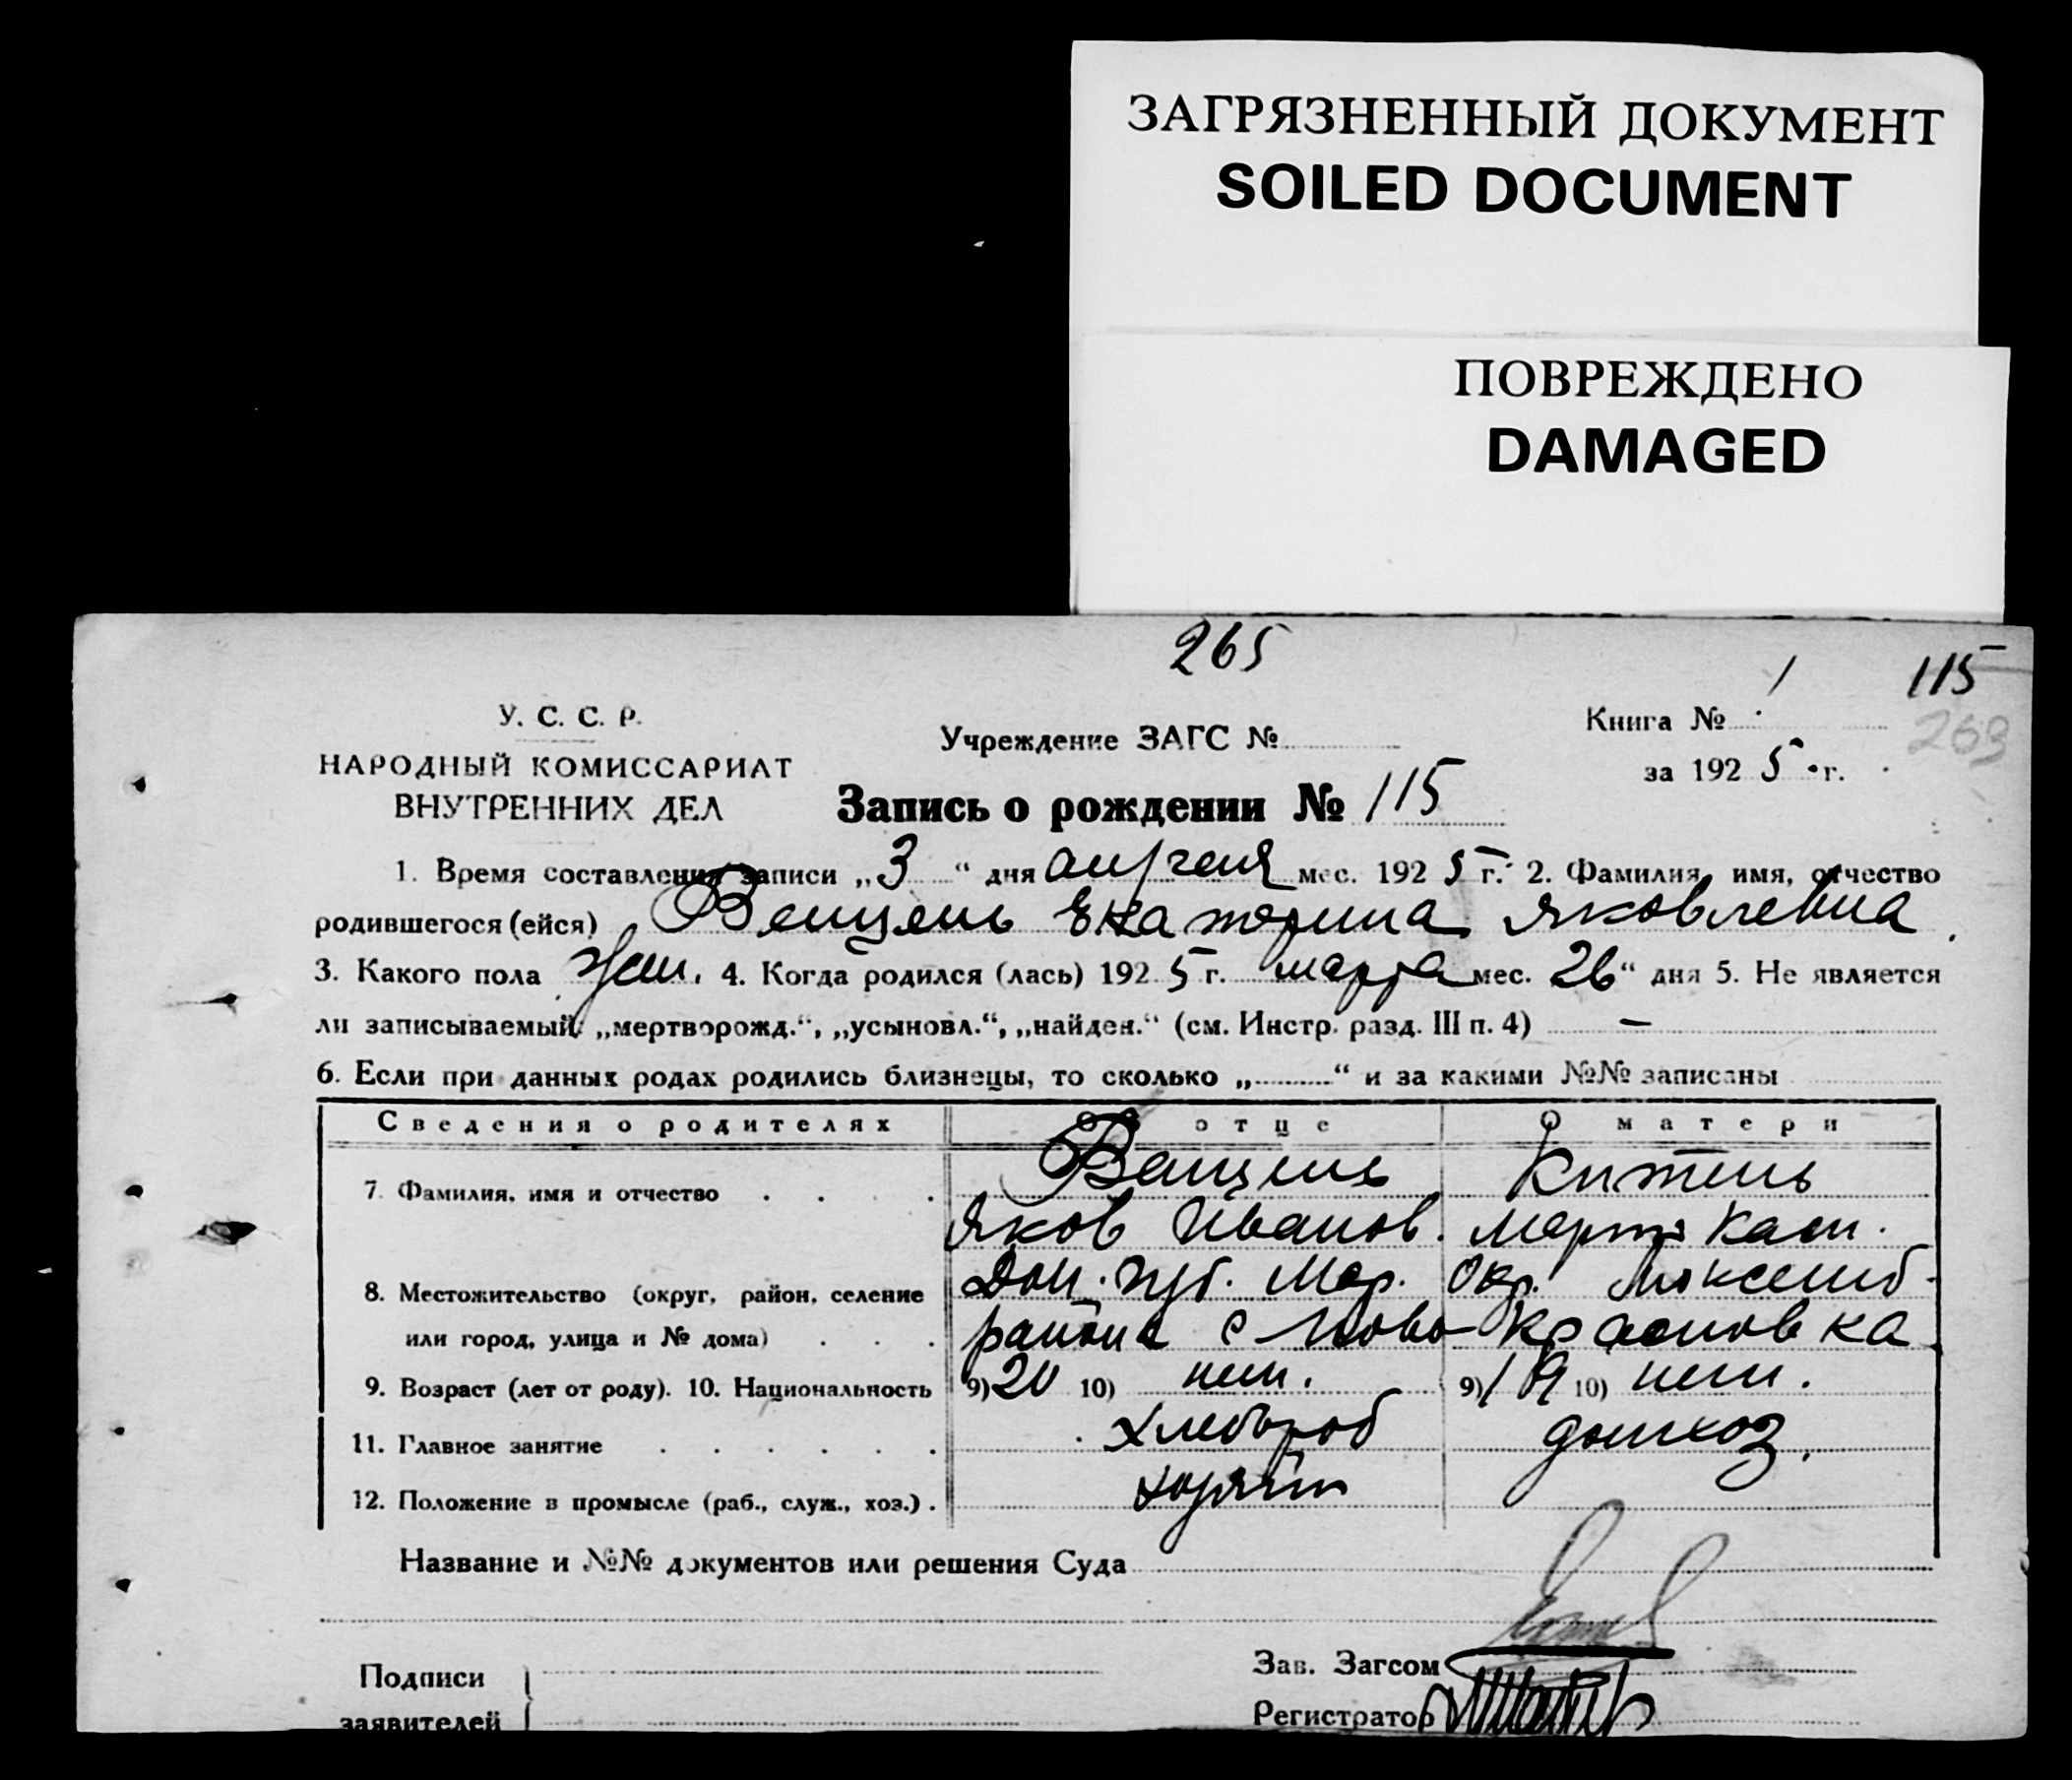 ЗАГРЯЗНЕННЫЙ ДОКУМЕНТ
SOILED DOCUMENT
ПОВРЕЖДЕНО
DAMAGED
265
1 115
У. С. С. Р.
Учреждение ЗАГС №
Книга №
269
НАРОДНЫЙ КОМИССАРИАТ
ВНУТРЕННИХ ДЕЛ
за 1925 г.
Запись о рождении № 115
1. Время составления записи „3“ дня апреля мес. 1925 г. 2. Фамилия, имя, отчество
родившегося (ейся) Венцель Екатерина Яковлевна
3. Какого пола жен. 4. Когда родился (лась) 1925 г. марта мес. 26“ дня 5. Не является
ли записываемый: „мертворожд.“, „усыновл.“, „найден.“ (см. Инстр. разд. III п. 4) —
6. Если при данных родах родились близнецы, то сколько „..........“ и за какими №№ записаны
Сведения о родителях О отце О матери
7. Фамилия, имя и отчество Венцель
Яков Иванов. Март
8. Местожительство (округ, район, селение Дон. губ. Мар. Окр.
или город, улица и № дома) района с Ново-Красновка
9. Возраст (лет от роду). 10. Национальность 9) 20 10) нем. 9) 19 10) нем.
11. Главное занятие хлебороб домхоз.
12. Положение в промысле (раб., служ., хоз.).
Название и №№ документов или решения Суда
Подписи
заявителей
Зав. Загсом
Регистратор